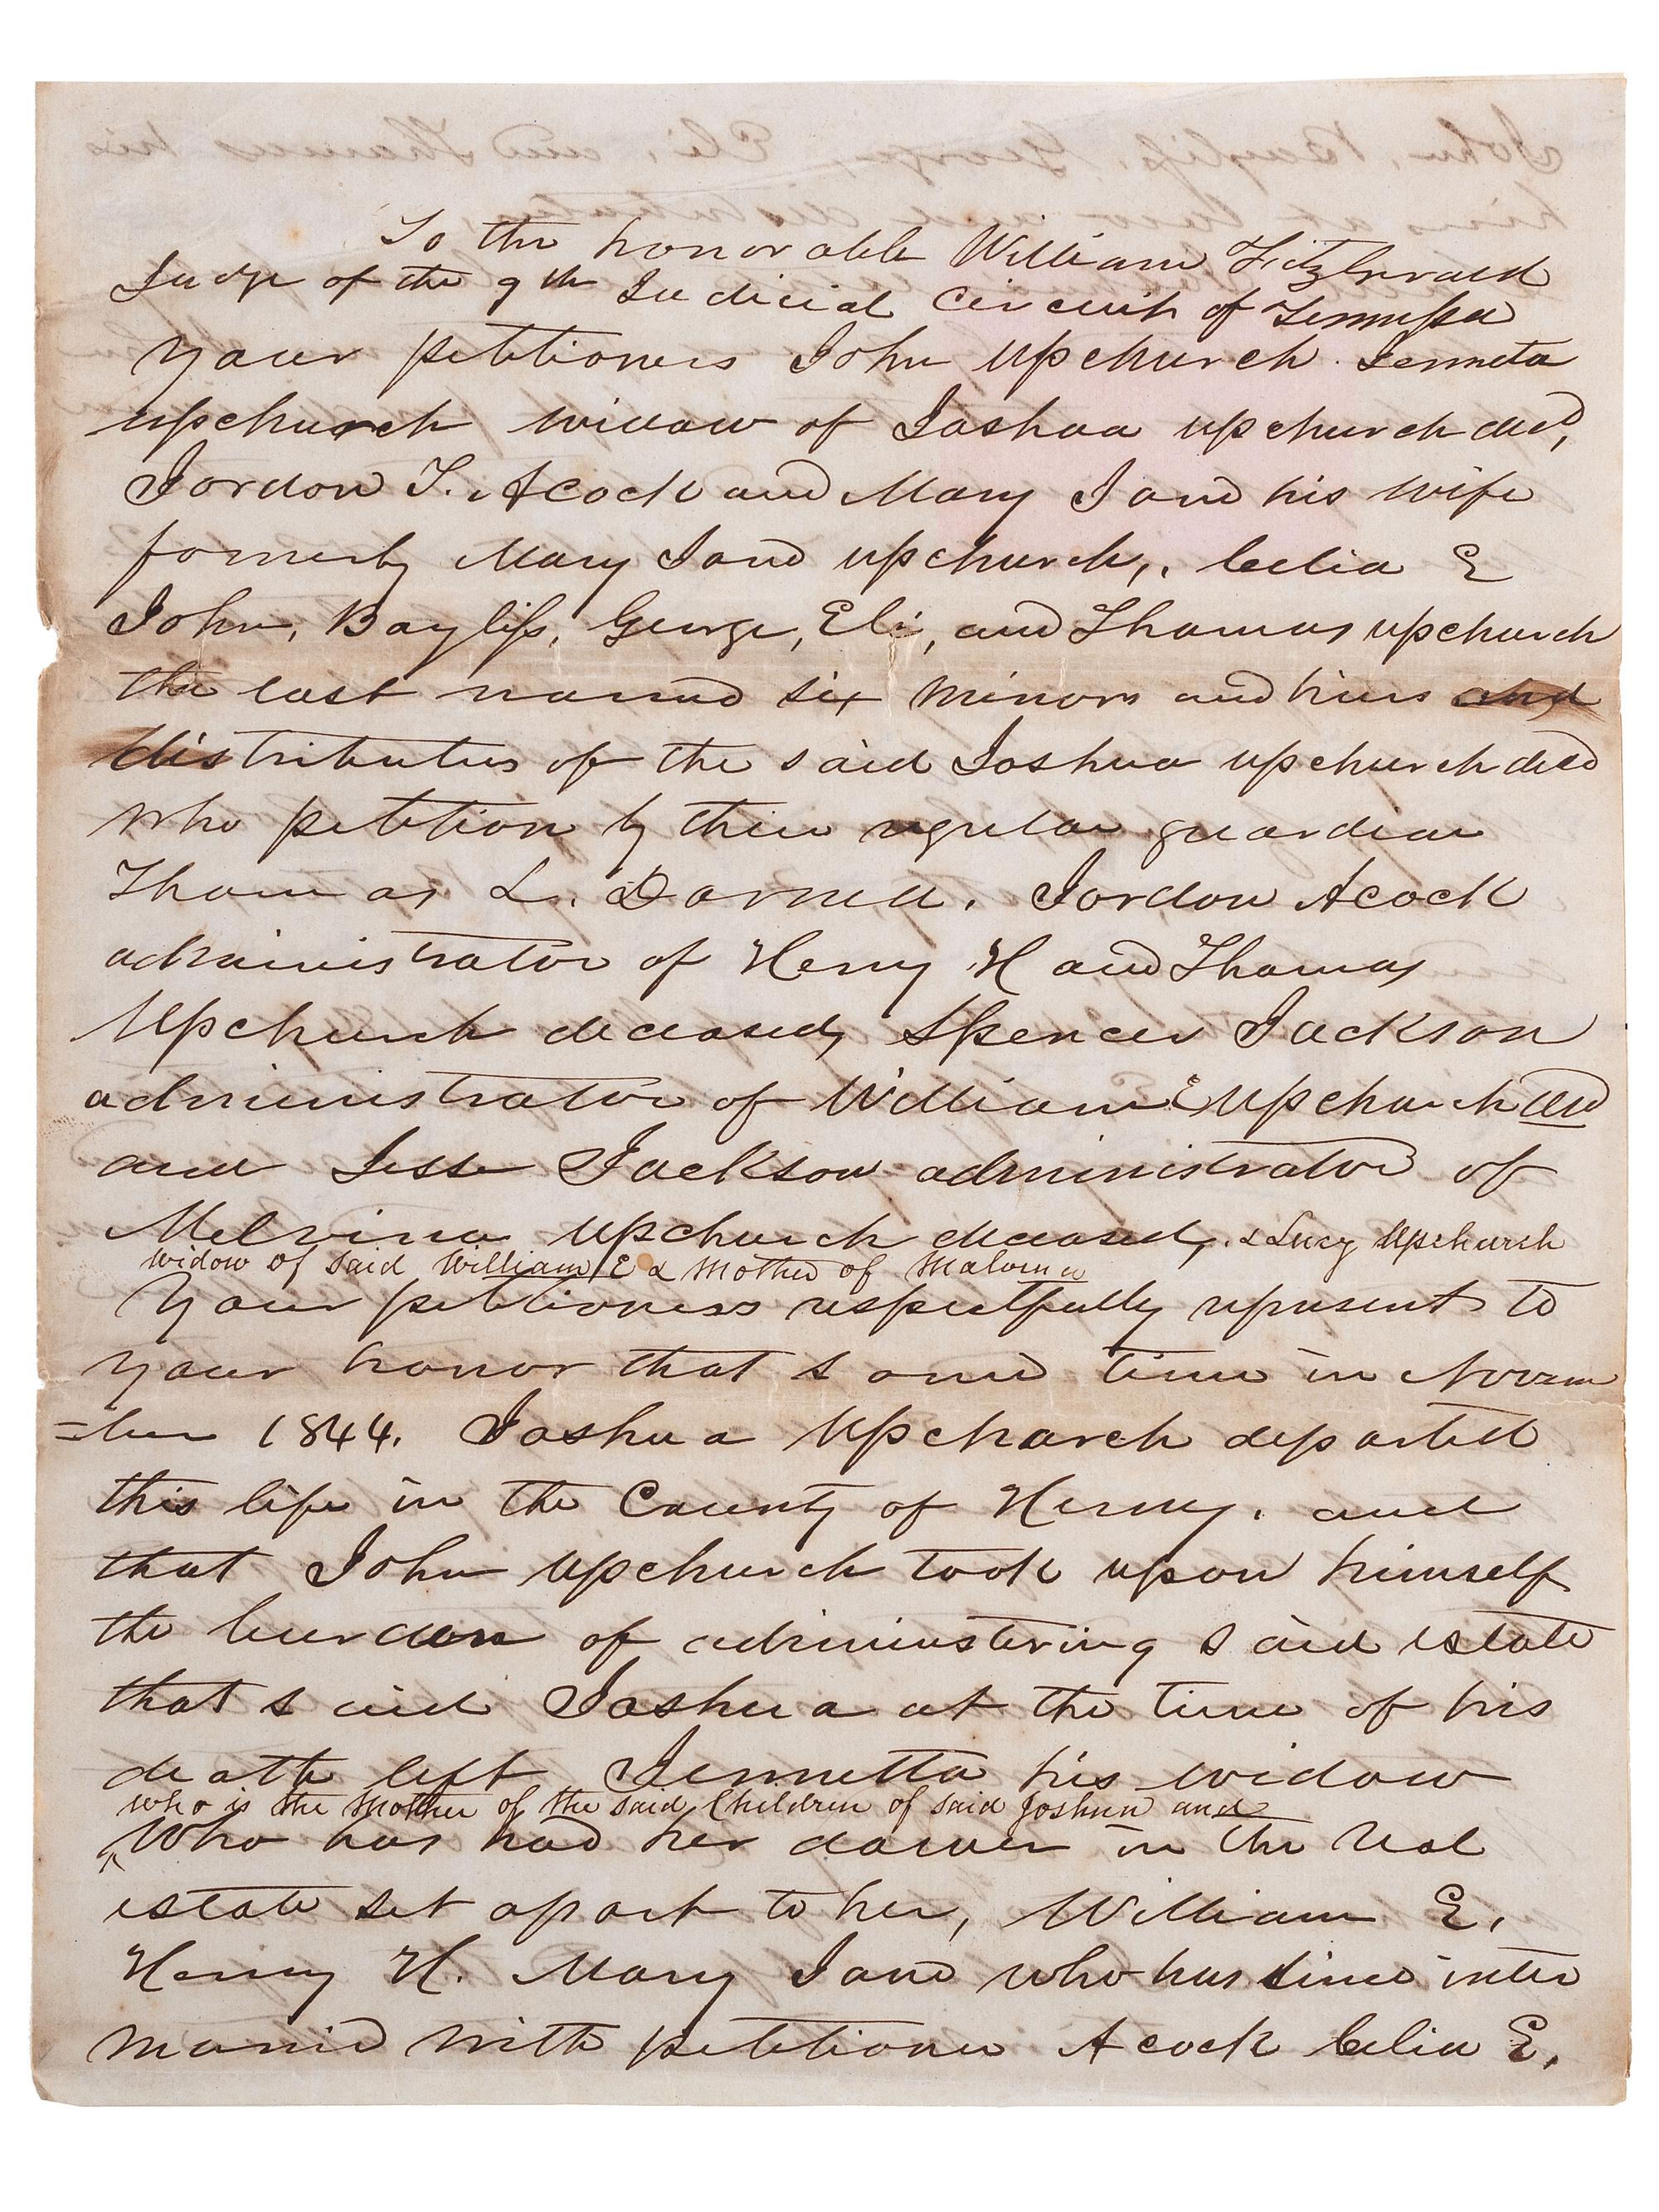 To the honorable William Fitzgerald
Judge of the 9th Judicial Circuit of Tennessee
Your petitioners John Upchurch. Jennetta
Upchurch widow of Joshua Upchurch decd,
Jordon T. Acock and Mary Jane his wife
formerly Mary Jane Upchurch,. Celia E
John, Bayliss, George, Eli, and Thomas Upchurch
the last named six minors and heirs and
distributees of the said Joshua Upchurch decd
who petition by their regular guardian
Thomas L. Darnell. Jordon Acock
administrator of Henry H and Thomas
Upchurch deceased, Spencer Jackson
administrator of William E Upchurch decd
and Jesse Jackson administrator of
Melvina Upchurch deceased,. & Lucy Upchurch
widow of said William E & Mother of Malvina
Your petitioners respectfully represent to
your honor that some time in Novem
=ber 1844. Joshua Upchurch departed
this life in the County of Henry. and
that John Upchurch took upon himself
the burden of administering said estate
that said Joshua at the time of his
death left Jennetta his widow
who is the Mother of the said Children of said Joshua and
Who has had her dower in the real
estate set apart to her, William E.
Henry H. Mary Jane who has since inter
married with petitioner Acock Celia E.